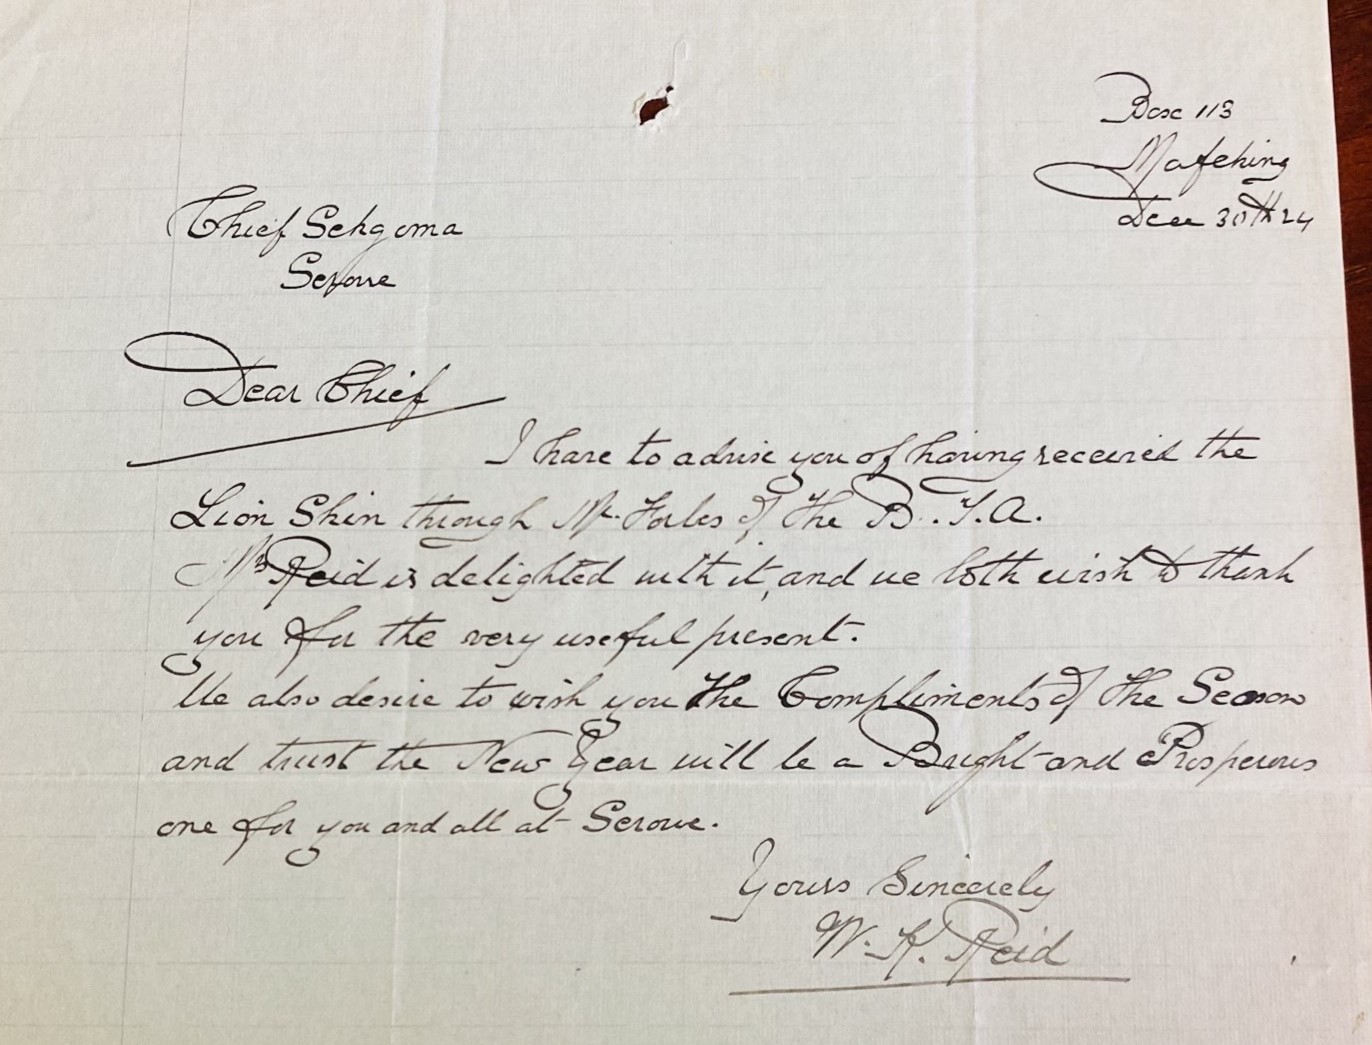 Box 113
Mafeking
Dec 30th 24
Chief Sekgoma
Serowe
Dear Chief
I have to advise you of having received the
Lion Skin through Mr. Forbes of the B.T.A.
Mrs Reid is delighted with it, and we both wish to thank
you for the very useful present.
We also desire to wish you the Compliments of the Season
and trust the New Year will be a Bright and Prosperous
one for you and all at Serowe.
Yours Sincerely
W. H. Reid